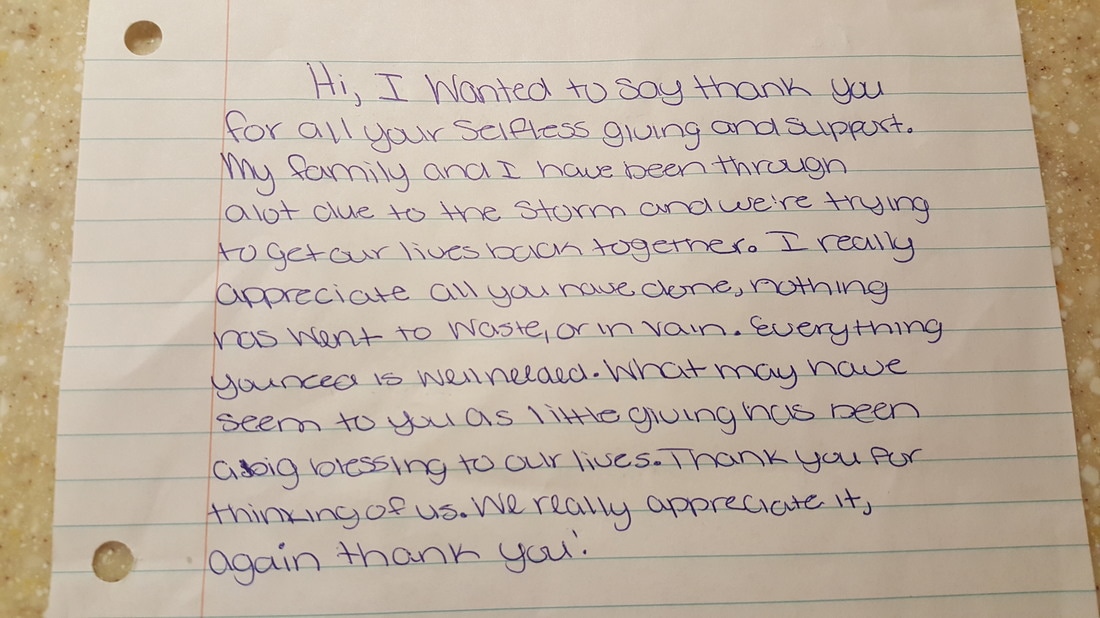 Hi, I Wanted to say thank you
for all your selfless giving and support.
My family and I have been through
alot due to the storm and we're trying
to get our lives back together. I really
appreciate all you have done, nothing
has went to waste, or in vain. Everything
you need is well needed. What may have
seem to you as little giving has been
a big blessing to our lives. Thank you for
thinking of us. We really appreciate it,
again thank you!